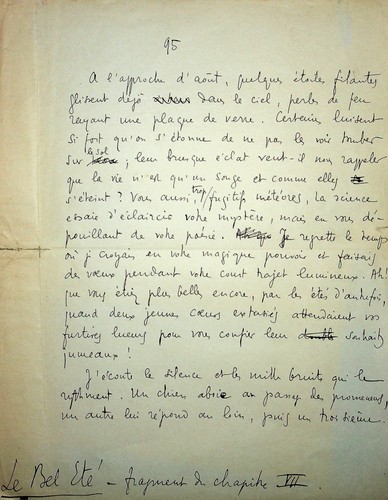 95
A l'approche d'août, quelques étoiles filantes
glissent déjà dans le ciel, perles de feu
rayant une plaque de verre. Certaines luisent
si fort qu'on s'étonne de ne pas les voir tomber
sur le sol ; leur brusque éclat veut-il nous rappeler
que la vie n'est qu'un songe et comme elles
s'éteint ? Vous aussi, trop fugitifs météores, la science
essaie d'éclaircir votre mystère, mais en vous dé-
pouillant de votre poésie. Je regrette le temps
où je croyais en votre magique pouvoir et faisais
des vœux pendant votre court trajet lumineux. Ah!
que vous étiez plus belles encore, par les étés d'autrefois,
quand deux jeunes cœurs extasiés attendaient vos
furtives lueurs pour vous confier leurs souhaits
jumeaux !
J'écoute le silence et les mille bruits qui le
rythment. Un chien aboie au passage des promeneurs,
un autre lui répond au loin, puis un troisième.
Le Bel Eté - fragment du chapitre VII.